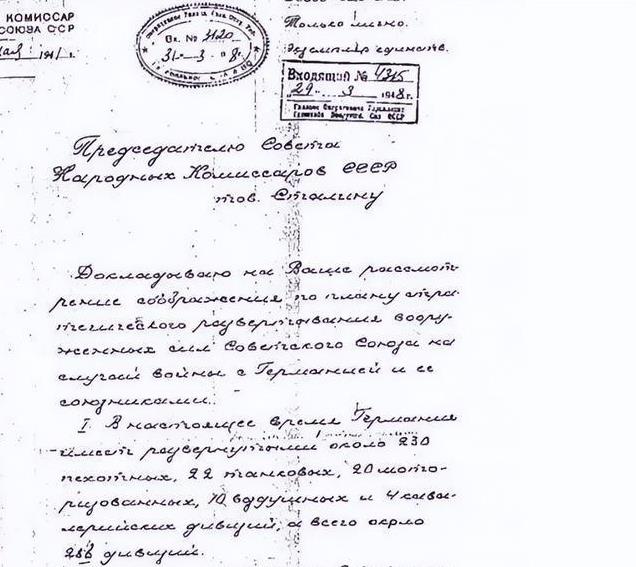 КОМИССАР
СОЮЗА ССР
1941 г.
Вх. № 3120
31 - 3 - 8 г.
Только лично.
Экземпляр единств.
Входящий № 4315
„29" 3 1948 г.
Председателю Совета
Народных Комиссаров СССР
тов. Сталину
Докладываю на Ваше рассмот-
рение соображения по плану стра-
тегического развертывания воору-
женных сил Советского Союза на
случай войны с Германией и ее
союзниками.
I. В настоящее время Германия
имеет развернутыми около 230
пехотных, 22 танковых, 20 мото-
ризованных, 10 воздушных и 4 кава-
лерийских дивизий, а всего около
286 дивизий.